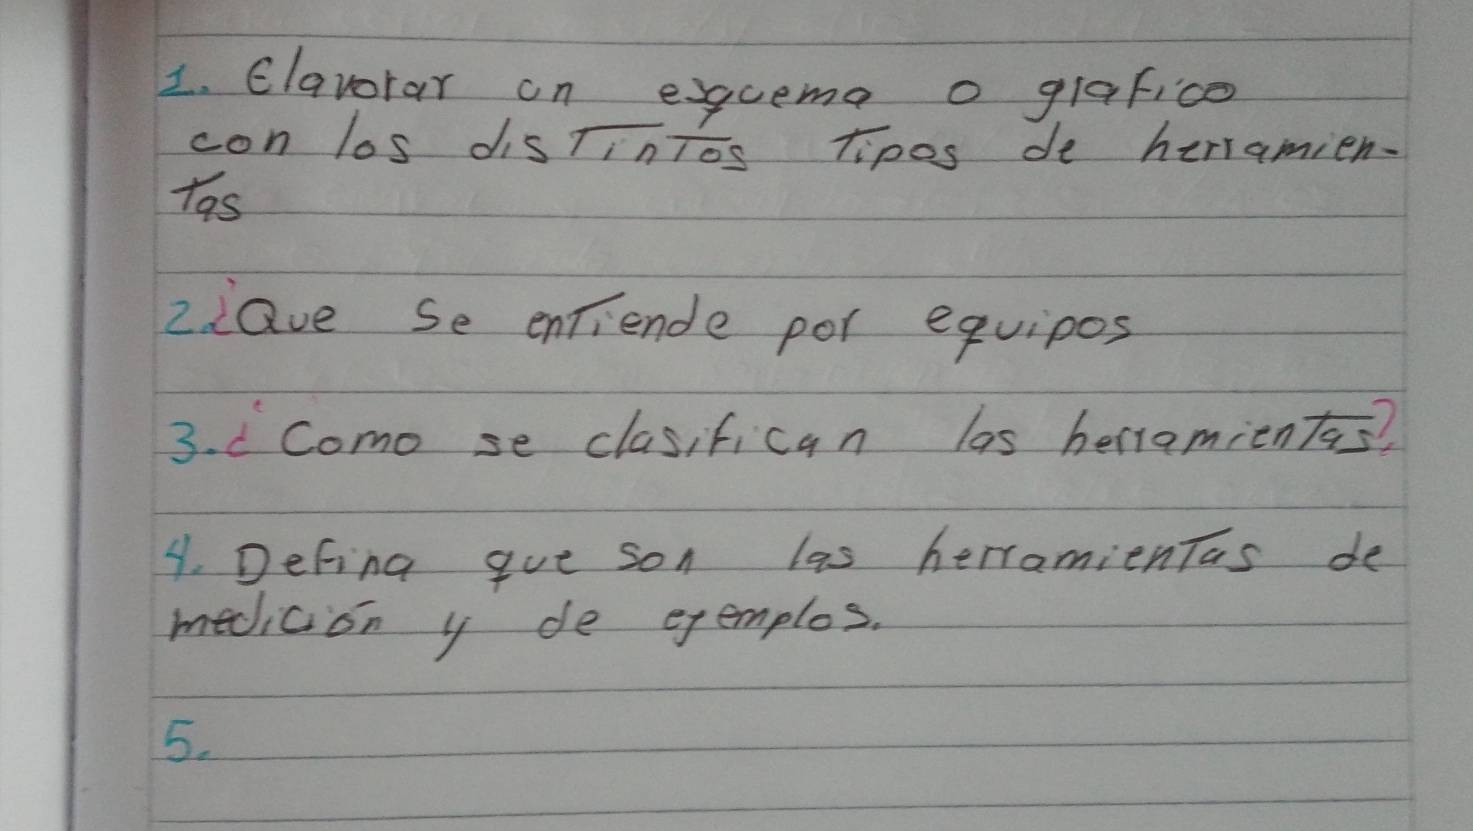 1. Elavorar un esquema o grafico
con los distintos tipos de herramien-
tas
2. ¿Que se entiende por equipos
3. ¿Como se clasifican las herramientas?
4. Defina que son las herramientas de
medición y de ejemplos.
5.